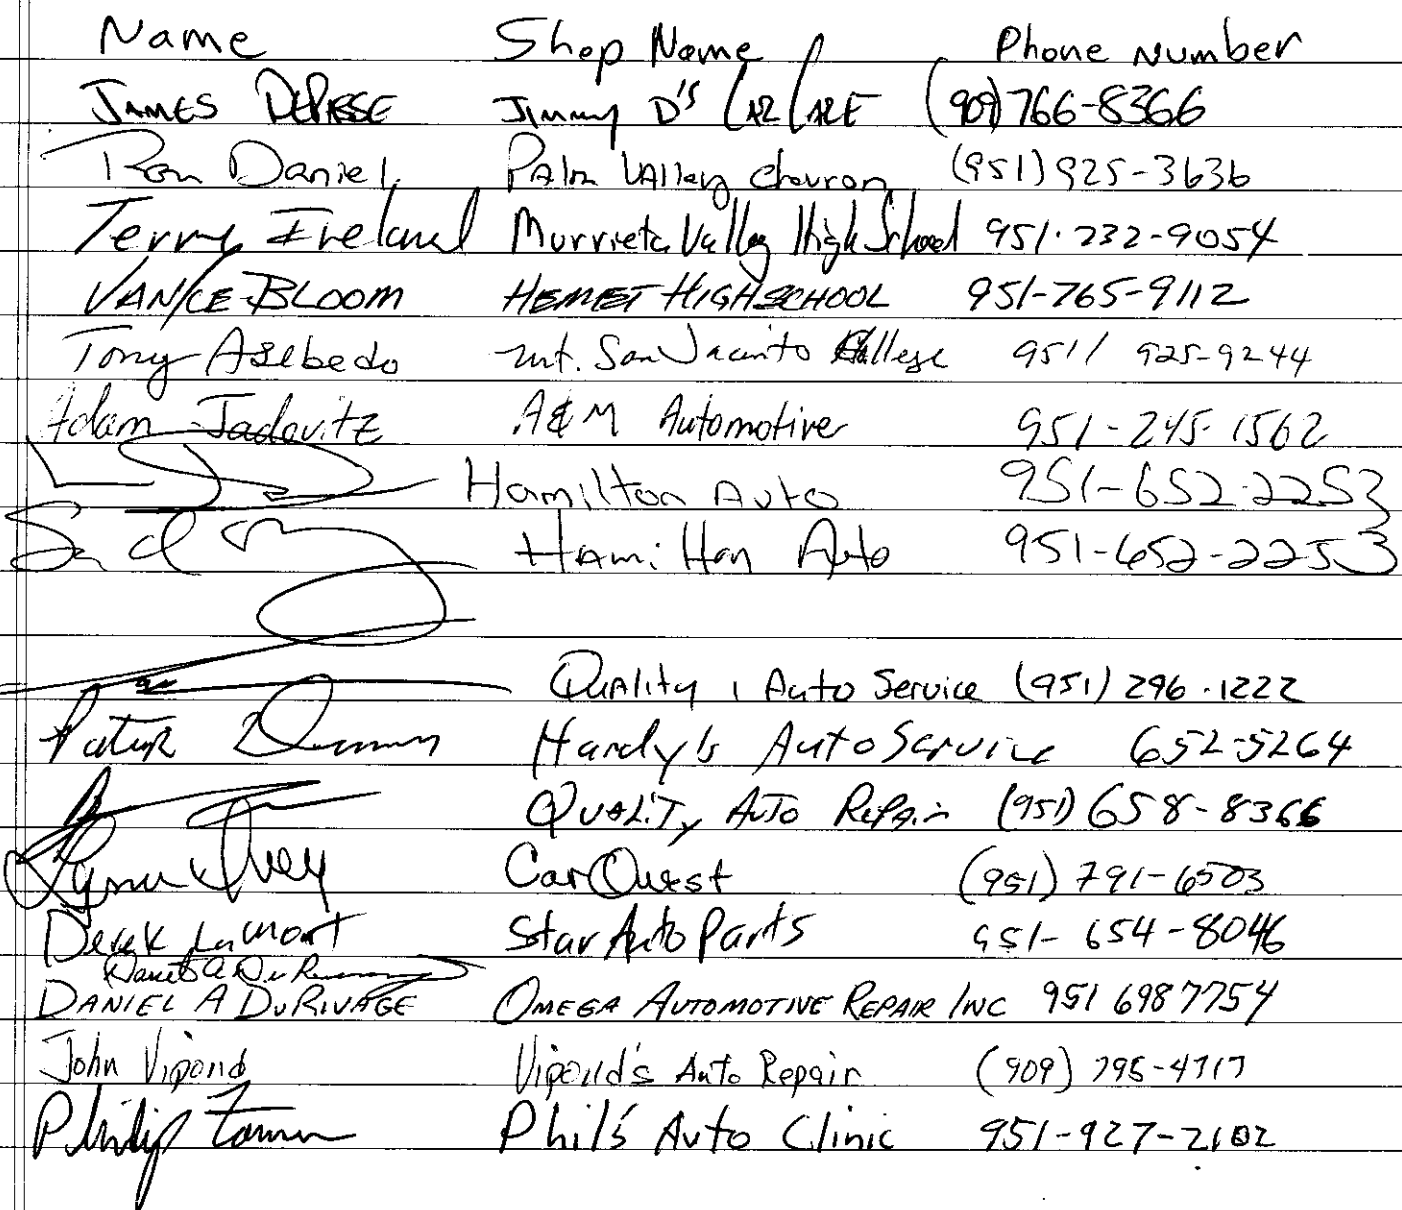 Name Shop Name Phone Number
JAMES DEPASSE Jimmy D's CAR CARE (909) 766-8366
Ron Daniel Palm Valley Chevron (951) 925-3636
Terry Ireland Murrieta Valley High School 951-232-9054
VANCE BLOOM HEMET HIGH SCHOOL 951-765-9112
Tony Asebedo mt. San Jacinto College 951/ 925-9244
Adam Jadovitz A&M Automotive 951-245-1562
Hamilton Auto 951-652-2253
Hamilton Auto 951-652-2253
Quality 1 Auto Service (951) 296-1222
Patrick Hardy's Auto Service 652-5264
QUALITY AUTO REPAIR (951) 658-8366
Lynn Ivey CarQuest (951) 791-6503
Derek Lamont Star Auto Parts 951-654-8046
DANIEL A DURIVAGE OMEGA AUTOMOTIVE REPAIR INC 951 698 7754
John Vipond Vipond's Auto Repair (909) 795-4717
Philip Phil's Auto Clinic 951-927-2102